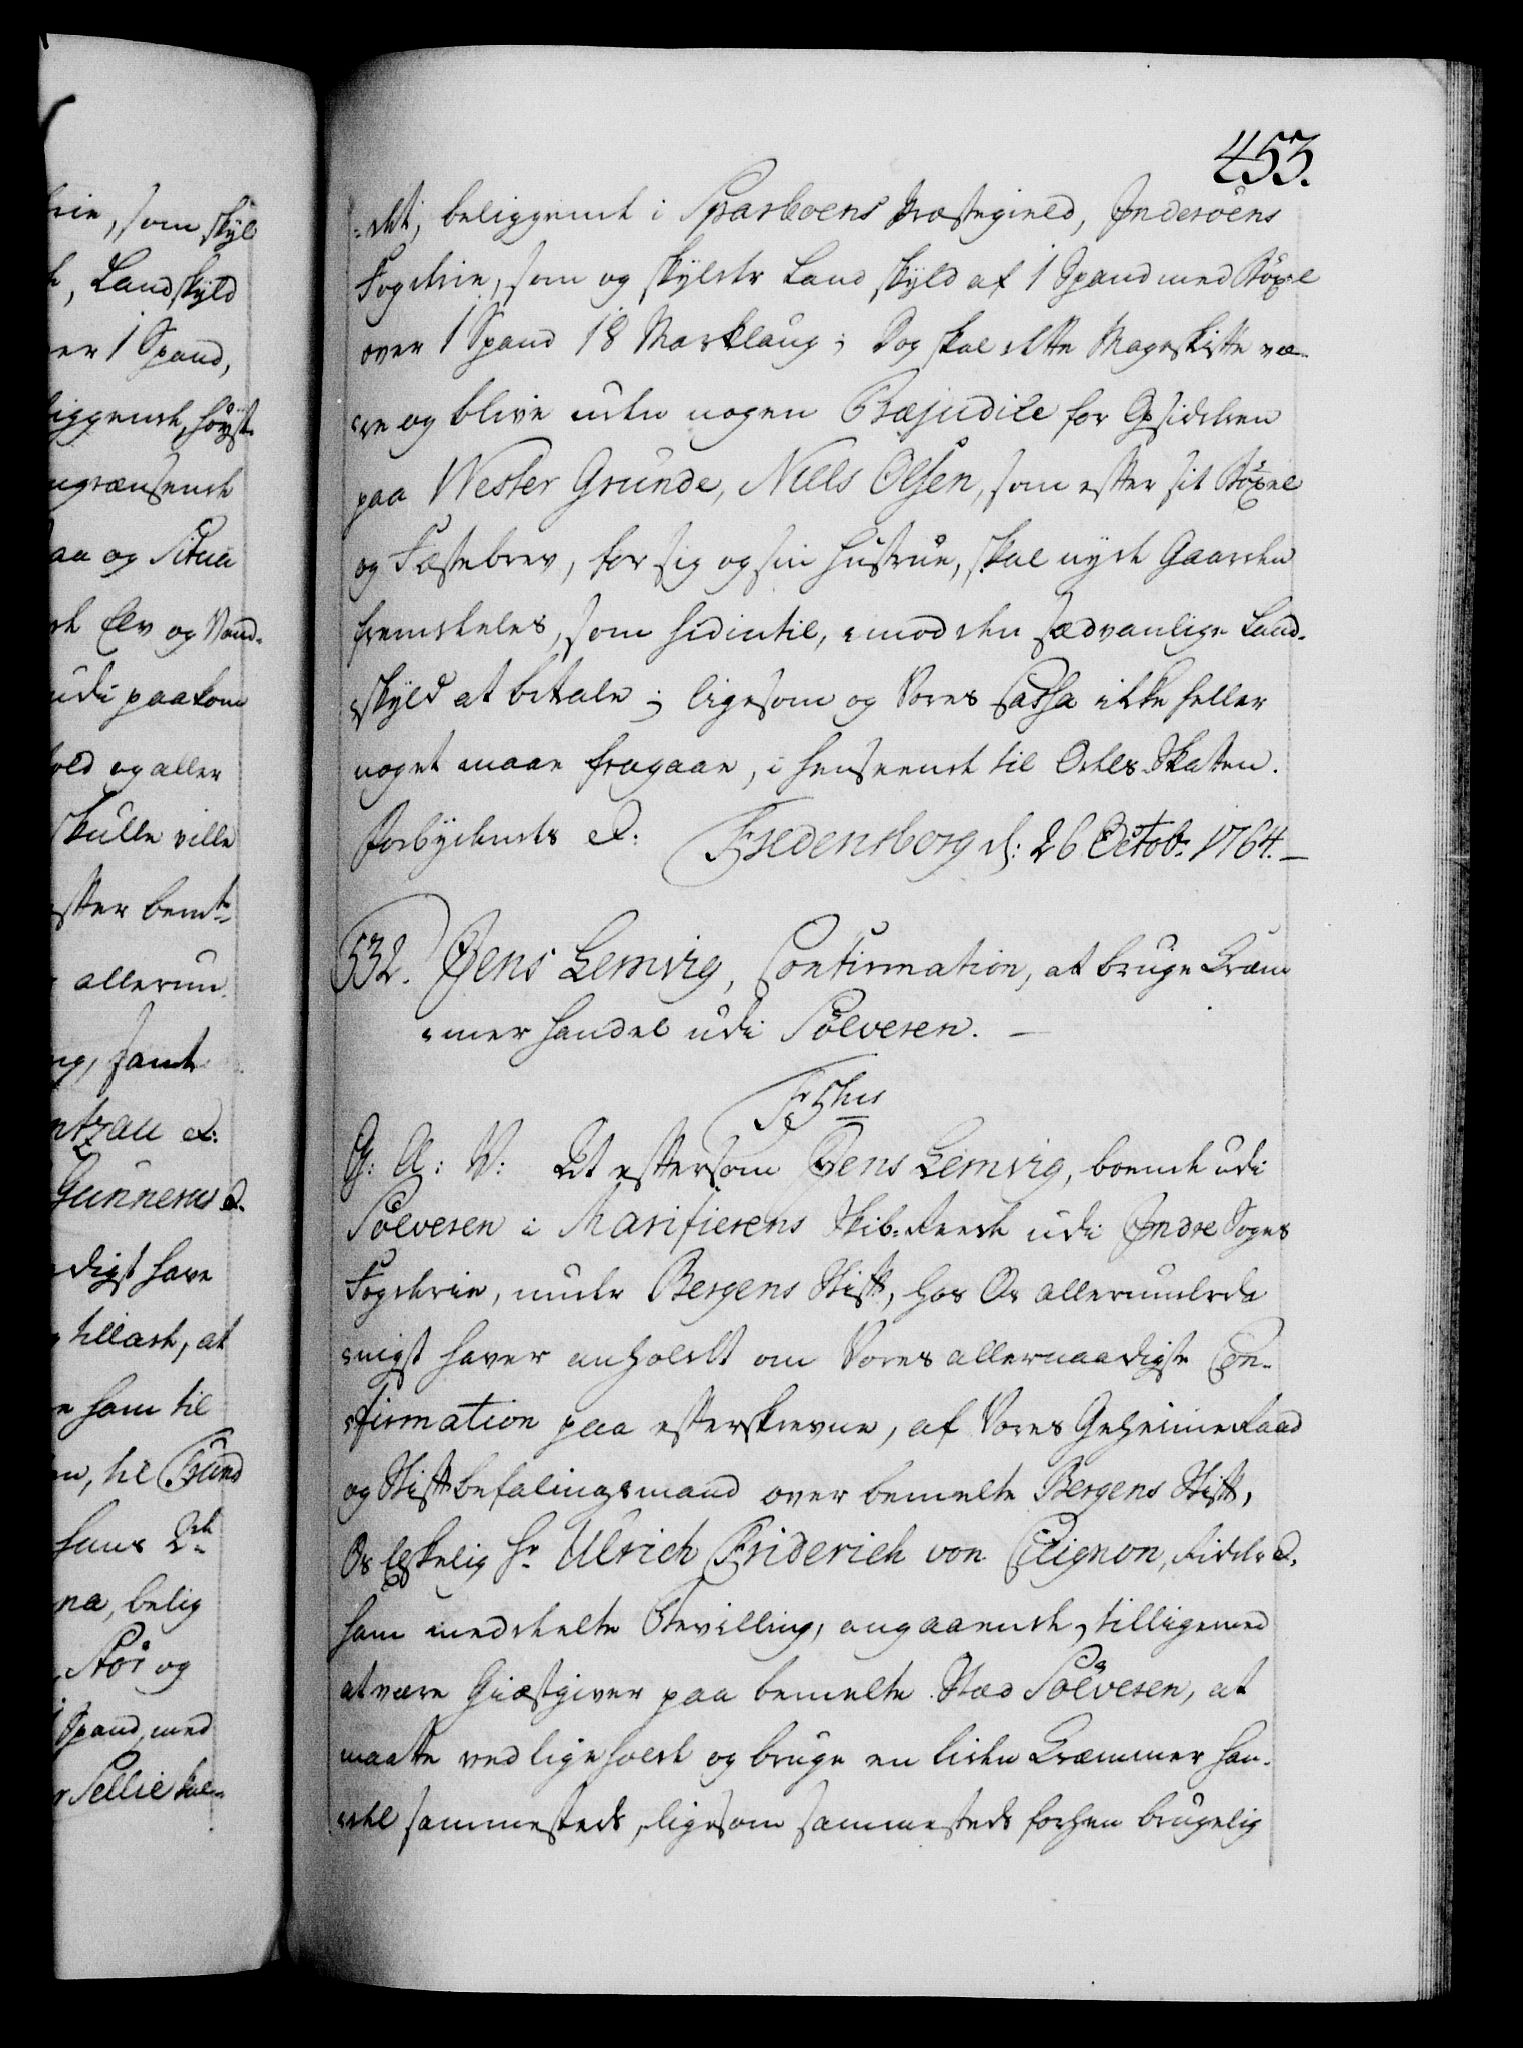 453.
=det, beliggende i Sparboens Præstegield, Inderöens
Fogderie, som og skylder Land skyld af 1 Spand med Böxel
over 1 Spand 18 Marklaug; Dog skal dette Mageskifte væ-
=re og blive uden nogen Præjudice for Opsidderen
paa Wester Grunde, Niels Olsen, som efter sit Böxel
og Fæstebrev, for sig og sin Hustrue, skal nyde Gaarden
fremdeles, som hidintil, imod den sædvanlige Land-
=skyld at betale; ligesom og Vores Cassa ikke heller
noget maae fragaae, i henseende til Odels-Skatten.
Forbydendes &: Fredensborg d: 26 Octob: 1764.—
532. Jens Lemvig, Confirmation, at bruge Kræm
=mer Handel udi Sölveren.—
G: A: V: at eftersom Jens Lemvig, boende udi
Sölveren i Marifierens Skib-Reede udi Indre Sogns
Fogderie, under Bergens Stift, hos Os allerunderda
=nigst haver anholdt om Vores allernaadigste Con-
=firmation paa efterskrevne, af Vores Geheimeraad
og Stiftbefalingsmand over bemelte Bergens Stift,
Os Elskelig Hr Ulrich Friderich von Cicignon, Ridder &.
ham meddeelte Bevilling, angaaende, tilligemed
at være Giæstgiver paa bemelte Stæd Sölveren, at
maatte vedligeholde og bruge en liden Kræmmer Han-
=del sammesteds, ligesom sammesteds forhen brugelig
rie, som skyl
, Landskyld
er 1 Spand,
iggende, höyst-
ngrænsende
aa og Situa
de Elv og Vand-
udi paakom
old og aller
skulle ville
efter bemte
allerun
ng, samt
ntzau &:
Gunnerus &.
digst have
tillade, at
e ham til
n, til Frund
hans
na, belig
Stör og
Spand, med
r Sellie hal-